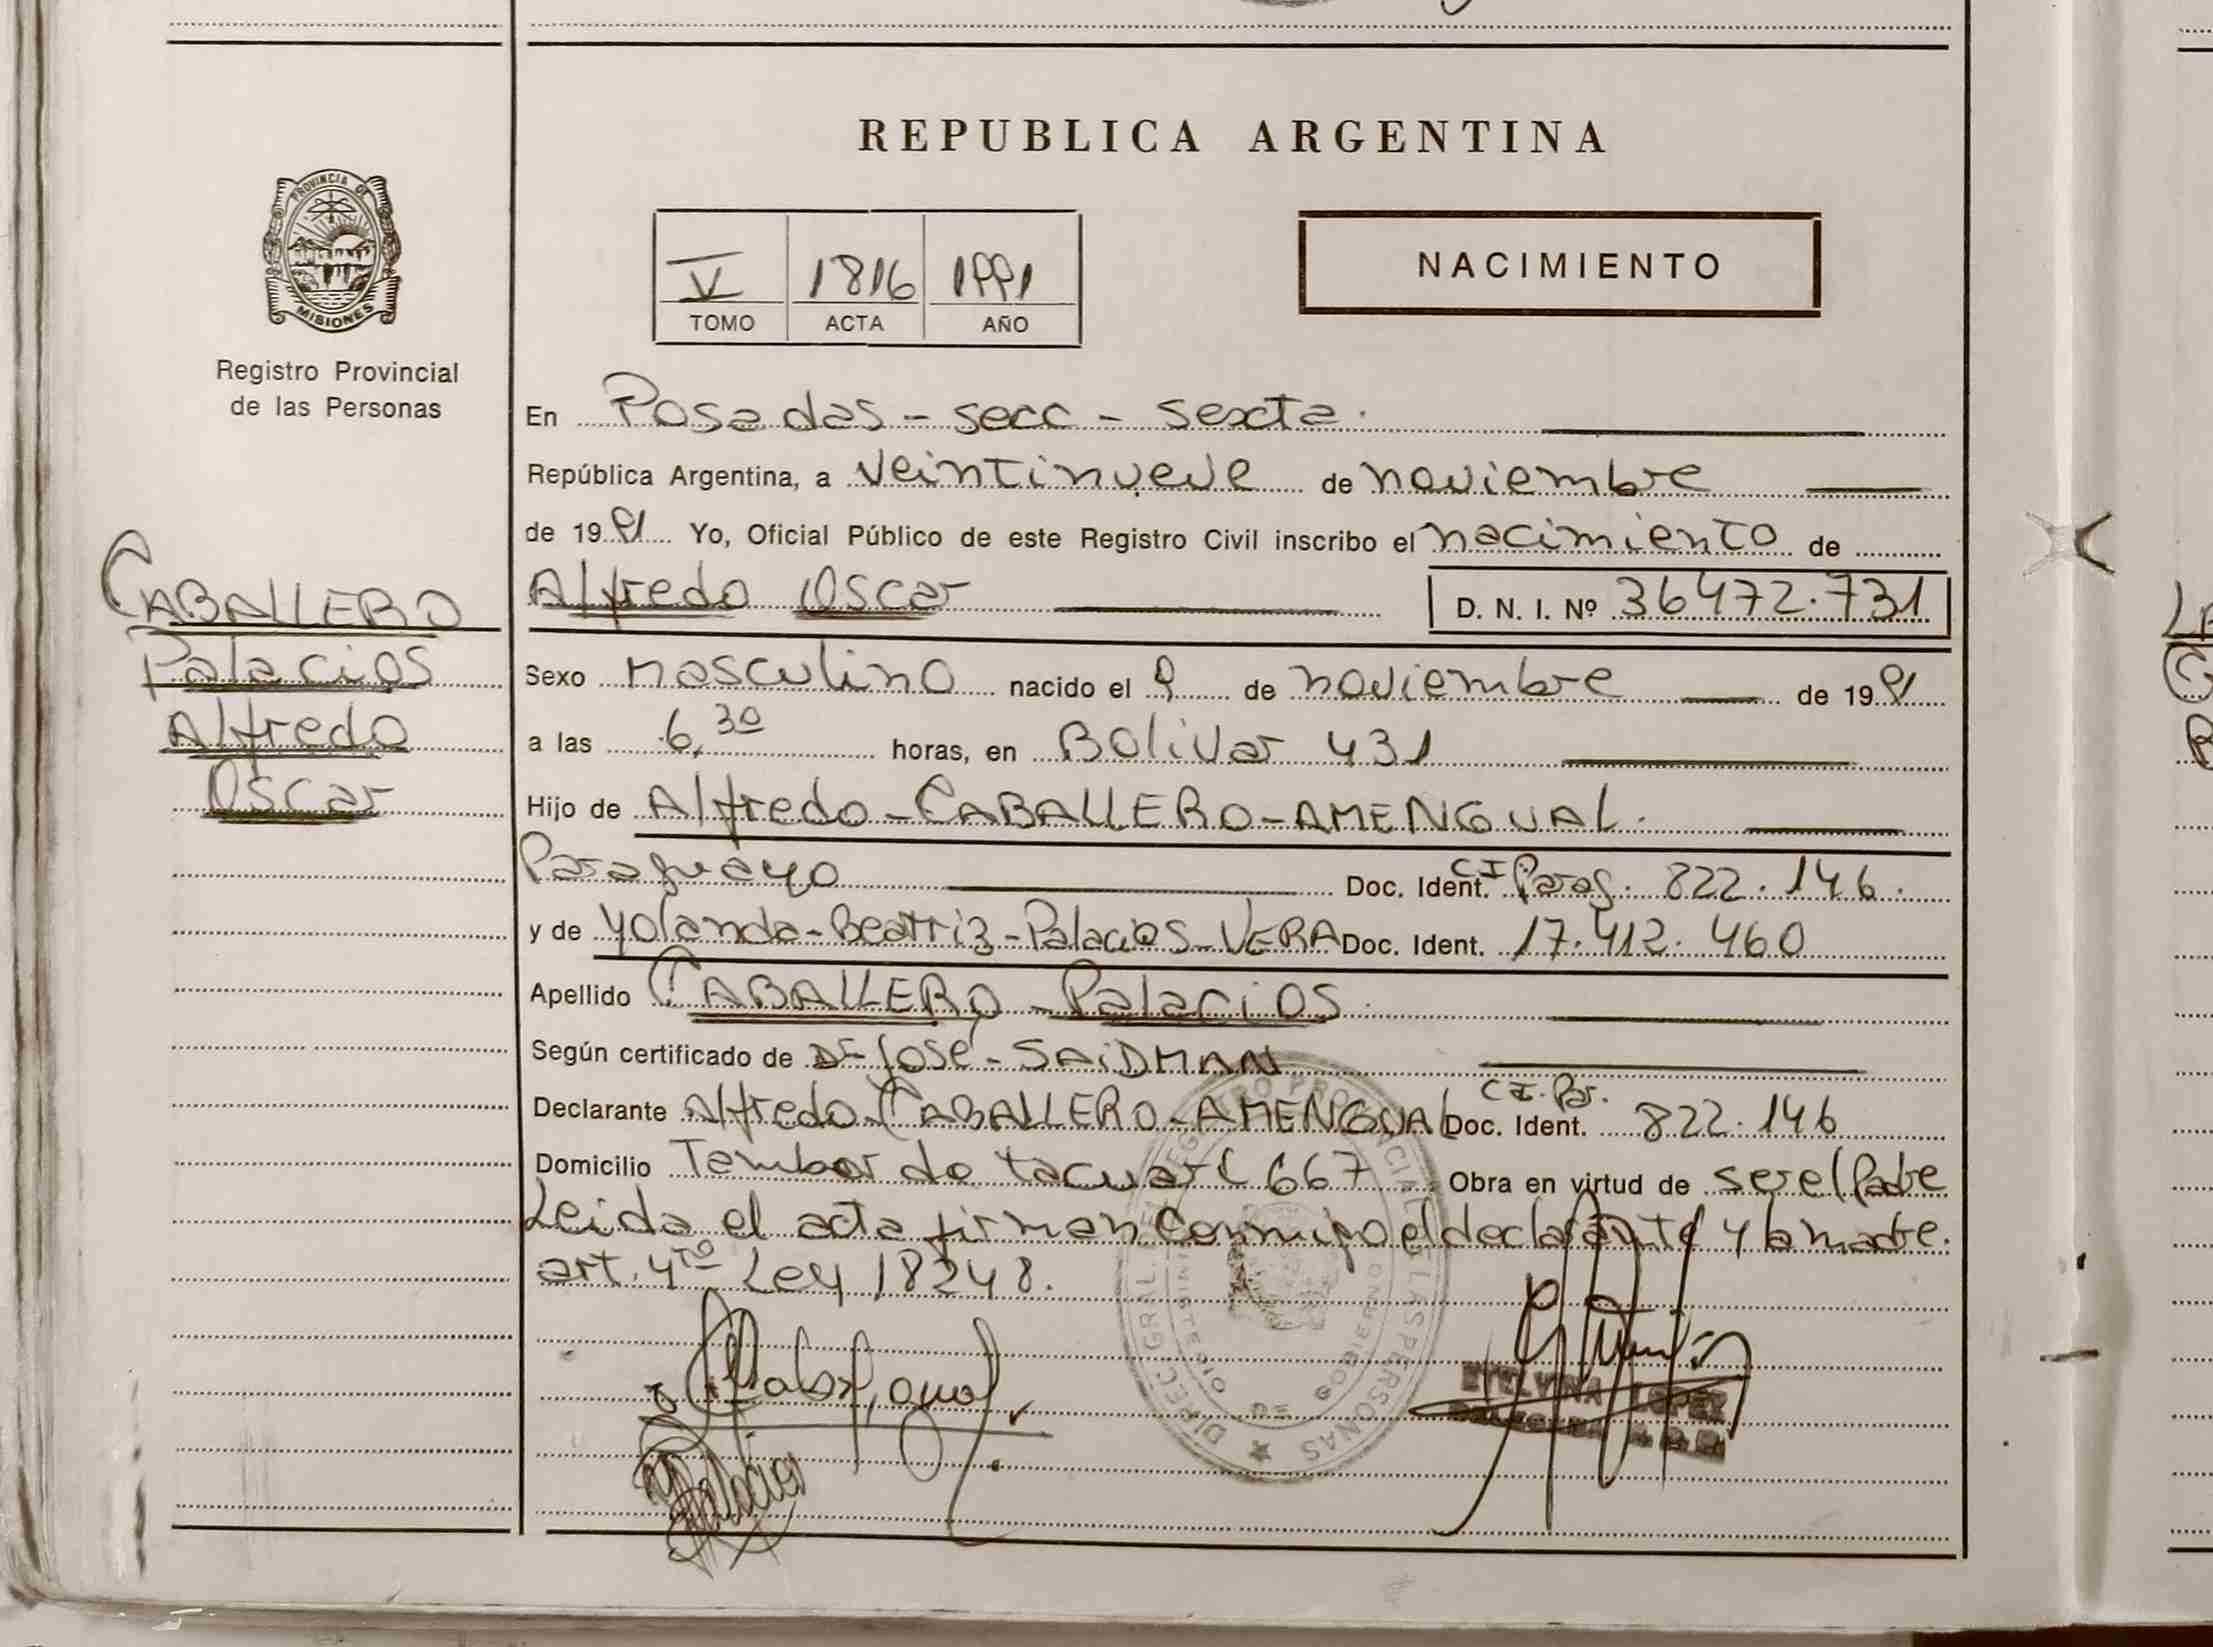 REPUBLICA ARGENTINA
PROVINCIA DE
MISIONES
Registro Provincial
de las Personas
V 1816 1991
TOMO ACTA AÑO
NACIMIENTO
En Posadas - secc - sexta.
República Argentina, a veintinueve de noviembre
de 19 91 Yo, Oficial Público de este Registro Civil inscribo el nacimiento de
Alfredo Oscar D. N. I. Nº 36472.731
CABALLERO
Palacios
Alfredo
Oscar
Sexo masculino nacido el 9 de noviembre de 19 91
a las 6,30 horas, en Bolivar 431
Hijo de Alfredo - CABALLERO - AMENGUAL.
Paraguayo Doc. Ident. CI Parag. 822.146.
y de Yolanda - Beatriz - Palacios - VERA Doc. Ident. 17.412.460
Apellido CABALLERO - Palacios.
Según certificado de Dr José - SAIDMAN
Declarante Alfredo - CABALLERO - AMENGUAL Doc. Ident. CI. Par. 822.146
Domicilio Tembor do tacuari 667 Obra en virtud de ser el Padre
Leida el acta firman conmigo el declarante y la madre.
art. 4to Ley 18248.
DIREC. GRAL. DEL REGISTRO PROVINCIAL DE LAS PERSONAS
MINISTERIO DE GOBIERNO
ETELVINA LOPEZ